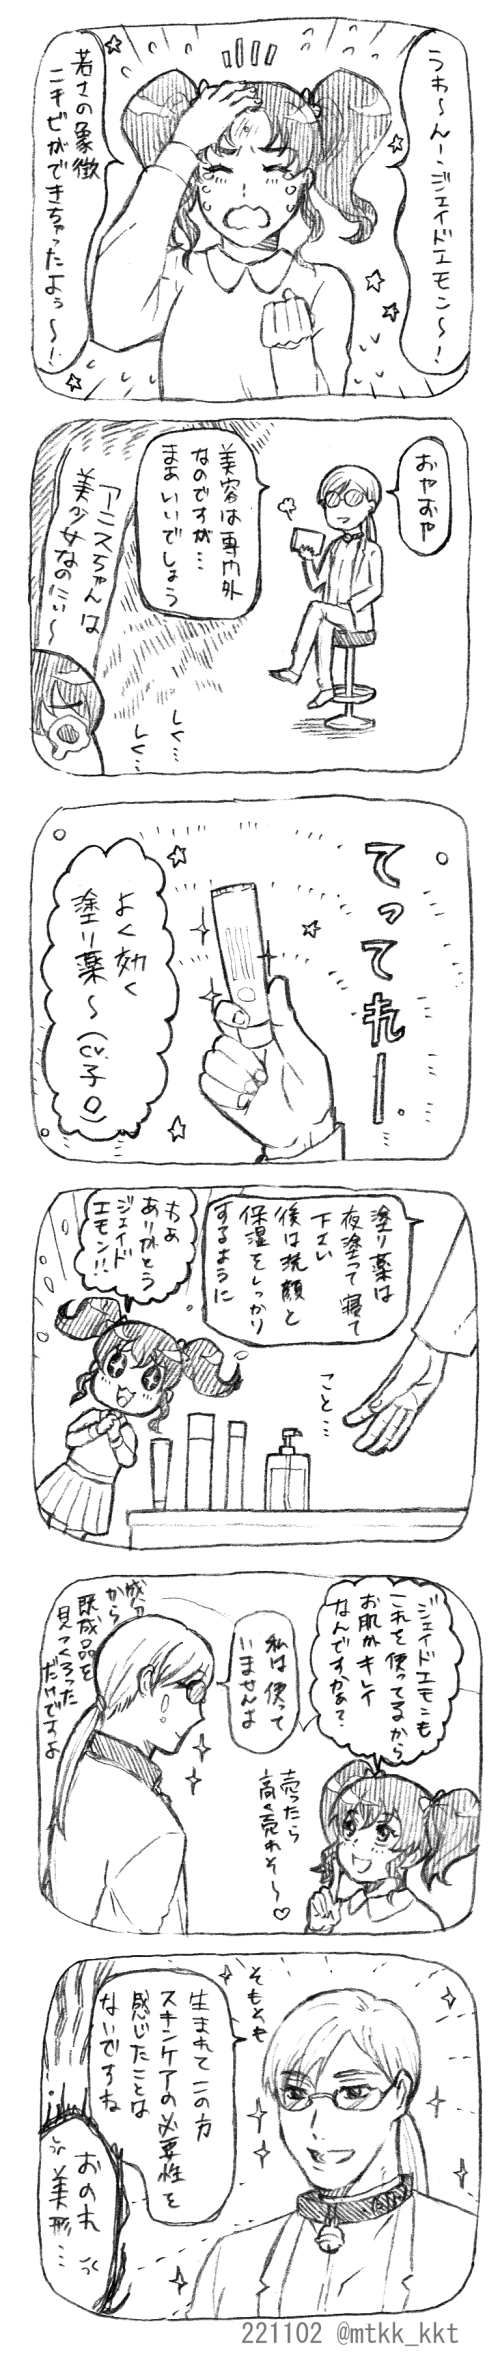 うわ～ん！ジェイドエモン～！
若さの象徴
ニキビができちゃったよぅ～！
おやおや
美容は専門外
なのですが…
まあいいでしょう
アニスちゃんは
美少女なのにぃ～
しく…
しく…
てってれー
よく効く
塗り薬～
塗り薬は
夜塗って寝て
下さい
後は洗顔と
保湿をしっかり
するように
わぁ
ありがとう
ジェイド
エモン!!
こと…
ジェイドエモンも
これを使ってるから
お肌がキレイ
なんですかぁ？
私は使って
いませんよ
売ったら
高く売れそ～♡
成分
から
既成品を
見つくろった
だけですよ
そもそも
生まれてこの方
スキンケアの必要性を
感じたことは
ないですね
おのれ
美形…
221102 @mtkk_kkt